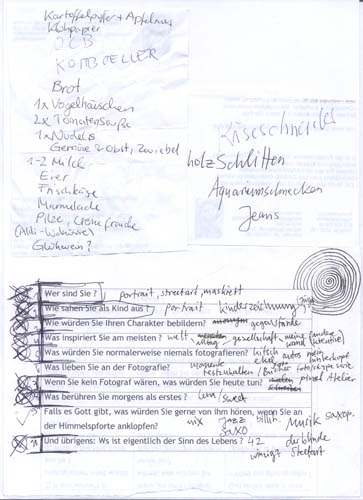 Kartoffelpuffer + Apfelmus
Klopapier
OCB
KONTROLLER
Brot
1x Vogelhäuschen
2x Tomatensoße
1x Nudeln
Gemüse & Obst, Zwiebel
1-2 Milch
Eier
Frischkäse
Marmelade
Pilze, Creme fraiche
Glühwein?
Käseschneider
holzschlitten
Aquariumschnecken
Jeans
Wer sind Sie ? portrait, streetart, maskiert
Wie sahen Sie als Kind aus? portrait kinderzeichnung
Wie würden Sie Ihren Charakter bebildern? gegenstände
Was inspiriert Sie am meisten ? welt, gesellschaft, meine (andere)
Was würden Sie normalerweise niemals fotografieren? kitsch autos
Was lieben Sie an der Fotografie? momente
festzuhalten /
Wenn Sie kein Fotograf wären, was würden Sie heute tun? pinsel Atelier
Was berühren Sie morgens als erstes ?
Falls es Gott gibt, was würden Sie gerne von ihm hören, wenn Sie an
der Himmelspforte anklopfen? nix jazz Musik
saxo
Und übrigens: Ws ist eigentlich der Sinn des Lebens? 42
streetart